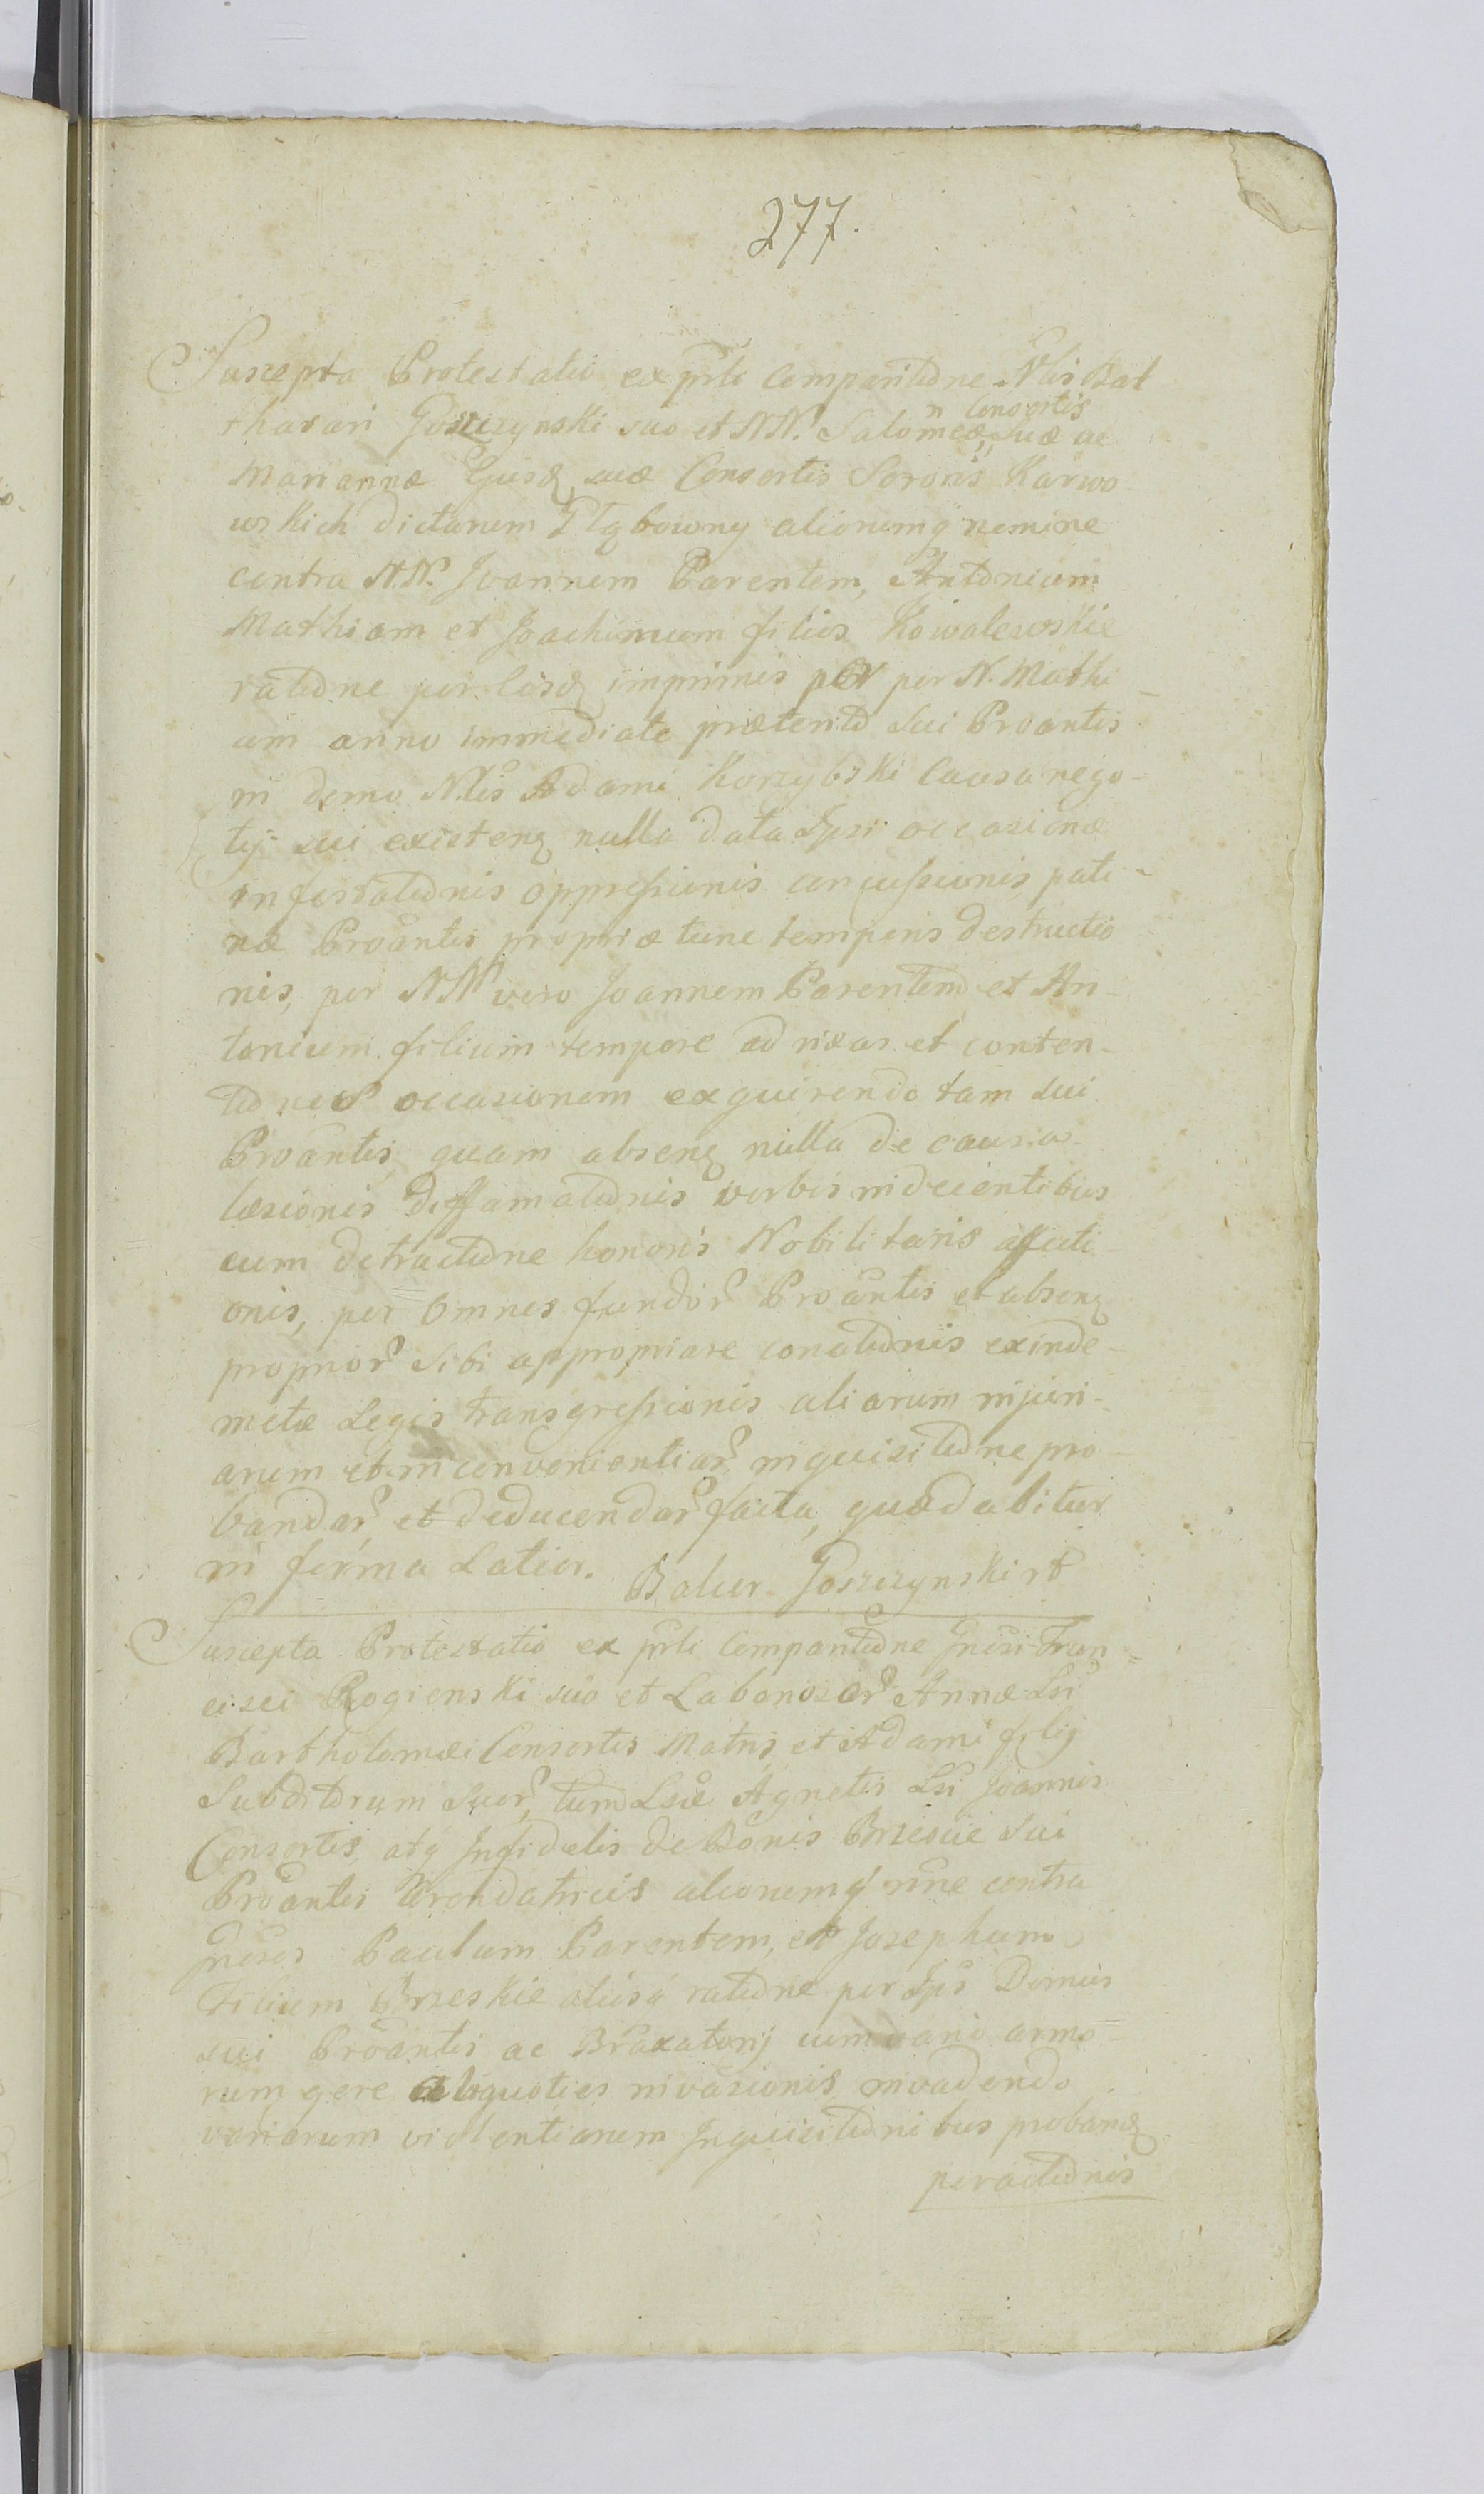 277.
Suscepta Protestatio ex prli Comparitione Nlis Bal
thasari Goszczynski suo et NN. Salomeæ, Suæ ac
n Consortis
Mariannæ Ejusd, suæ Consortis Sororis Karwo
wskich dictarum aliorumq nomine
contra N.N. Joannem Parentem, Antonium
Mathiam et Joachimum filios Kowalewskie
ratione per eosd imprimis per per N. Mathi
am anno immediate præterito sui Proantis
in domo N.lis Adami Korzybski Causa nego-
tij sui existens nulla data Ipsi occasione
infestationis oppressionis concussionis, pati-
næ Proantis propriæ tunc temporis destructio
nis, per NN vero Joannem Parentem et An-
tonium filium tempore ad rixas et conten-
tiones occasionem exquirendo tam sui
Proantis quam absenq nulla de causa
læsionis diffamationis verbis indecentibus
cum detractione honoris Nobilitaris affecti
onis, per Omnes fundor Proantis et absenq
proprior sibi appropriare conationis exinde-
metæ Legis transgressionis aliarum injuri-
arum et inconvenientiar inquisitione pro-
bandar et deducendar facta, quæ dabitur
in forma Latior. Balcer Goszczynski
Suscepta Protestatio ex prli Comparitione Gnesi Fran=
cisci Rogienski suo et Laboriosar Annæ Lsi
Bartholomæi Consortis Matris et Adami filij
Subditorum Suor, tum Lsæ Agnetis Lsi Joannis
Consortis, atq Infidelis de Bonis Brzescie sui
Proantis Arendatricis aliorumq nne contra
Gnesos Paulum Parentem, et Josephum
Filium Brzeskie aliisq ratione per Ips Domus
sui Proantis ac Braxatorij cum vario armo-
rum gere aliquoties invasionis, invadendo
variarum violentiarum Inquisitionibus proband
peractionis